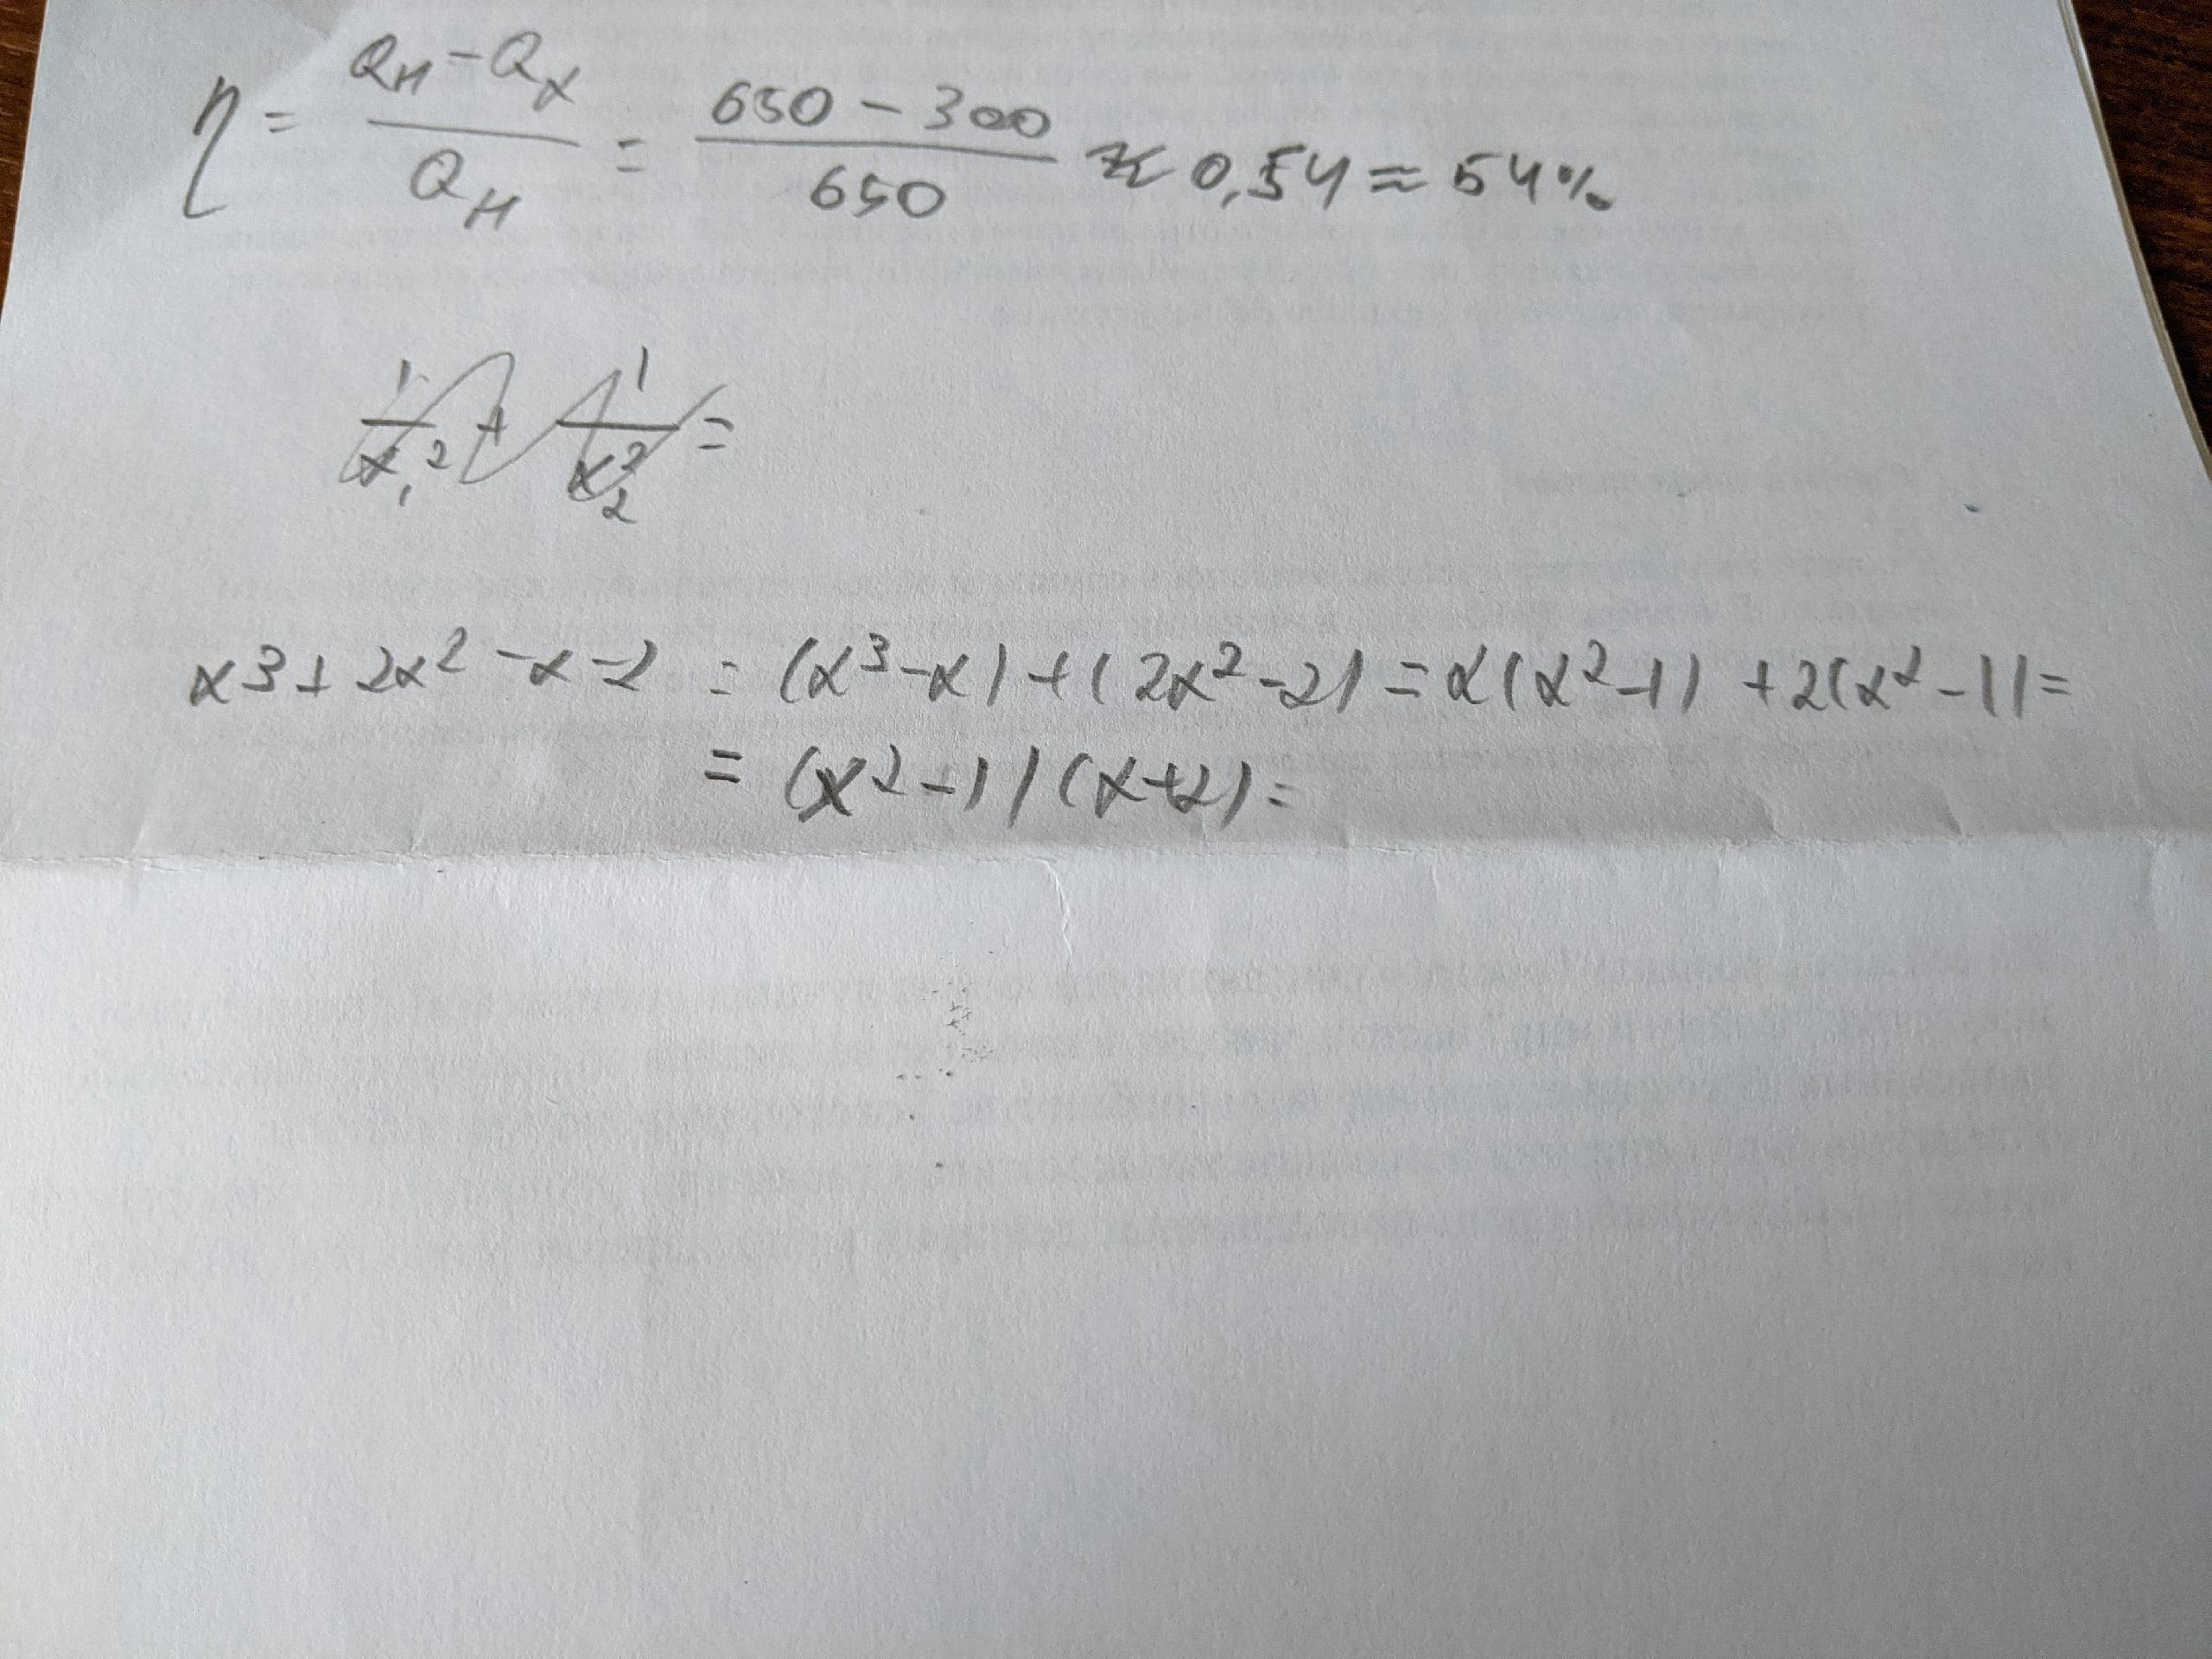 η = (Qн - Qх) / Qн = (650 - 300) / 650 ≈ 0,54 ≈ 54%
1/x₁² + 1/x₂² =
x³ + 2x² - x - 2 = (x³ - x) + (2x² - 2) = x(x² - 1) + 2(x² - 1) =
= (x² - 1)(x + 2) =